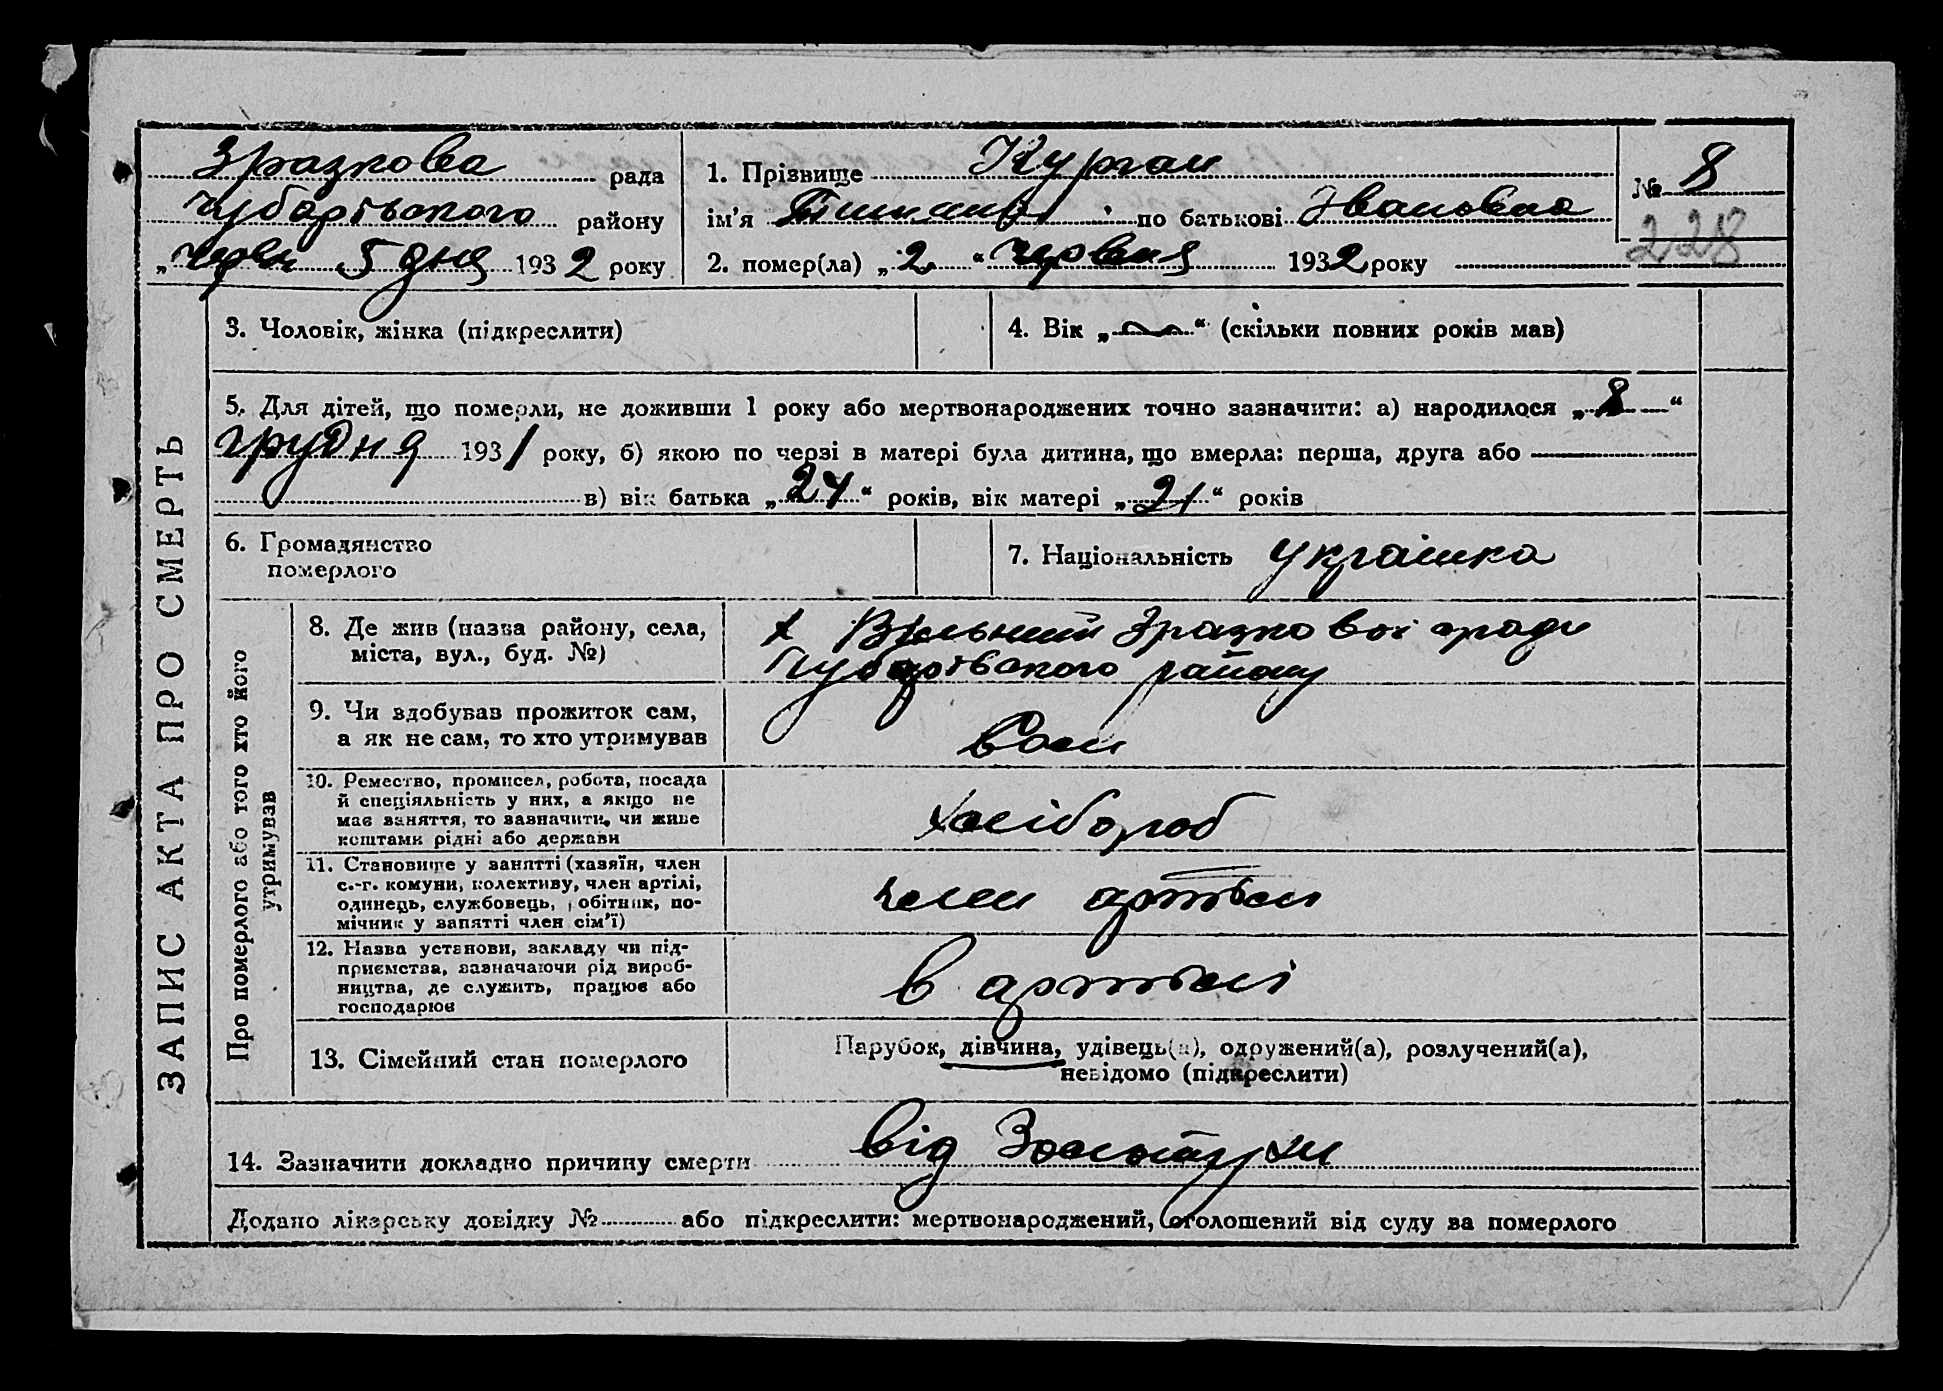 Зразкова рада
Чубарівського району
„Черв 5 дня 1932 року
1. Прізвище Курган
ім'я по батькові Івановна
2. помер(ла) „2“ червня 1932 року
№ 8
228
ЗАПИС АКТА ПРО СМЕРТЬ
3. Чоловік, жінка (підкреслити)
4. Вік „ “ (скільки повних років мав)
5. Для дітей, що померли, не доживши 1 року або мертвонароджених точно зазначити: а) народилося „8“
грудня 1931 року, б) якою по черзі в матері була дитина, що вмерла: перша, друга або
в) вік батька „24“ років, вік матері „21“ років
6. Громадянство
померлого
7. Національність Українка
Про померлого або того хто його
утримував
8. Де жив (назва району, села,
міста, вул., буд. №)
х Вільний Зразкової ради
Чубарівського району
9. Чи здобував прожиток сам,
а як не сам, то хто утримував
10. Ремество, промисел, робота, посада
й спеціяльність у них, а якщо не
має заняття, то зазначити, чи живе
коштами рідні або держави
хлібороб
11. Становище у занятті (хазяїн, член
с.-г. комуни, колективу, член артілі,
одинець, службовець, робітник, по-
мічник у занятті член сім'ї)
член артели
12. Назва установи, закладу чи під-
приємства, зазначаючи рід вироб-
ництва, де служить, працює або
господарює
в артелі
13. Сімейний стан померлого
Парубок, дівчина, удівець(а), одружений(а), розлучений(а),
невідомо (підкреслити)
14. Зазначити докладно причину смерти від Золотухи
Додано лікарську довідку № або підкреслити: мертвонароджений, оголошений від суду за померлого